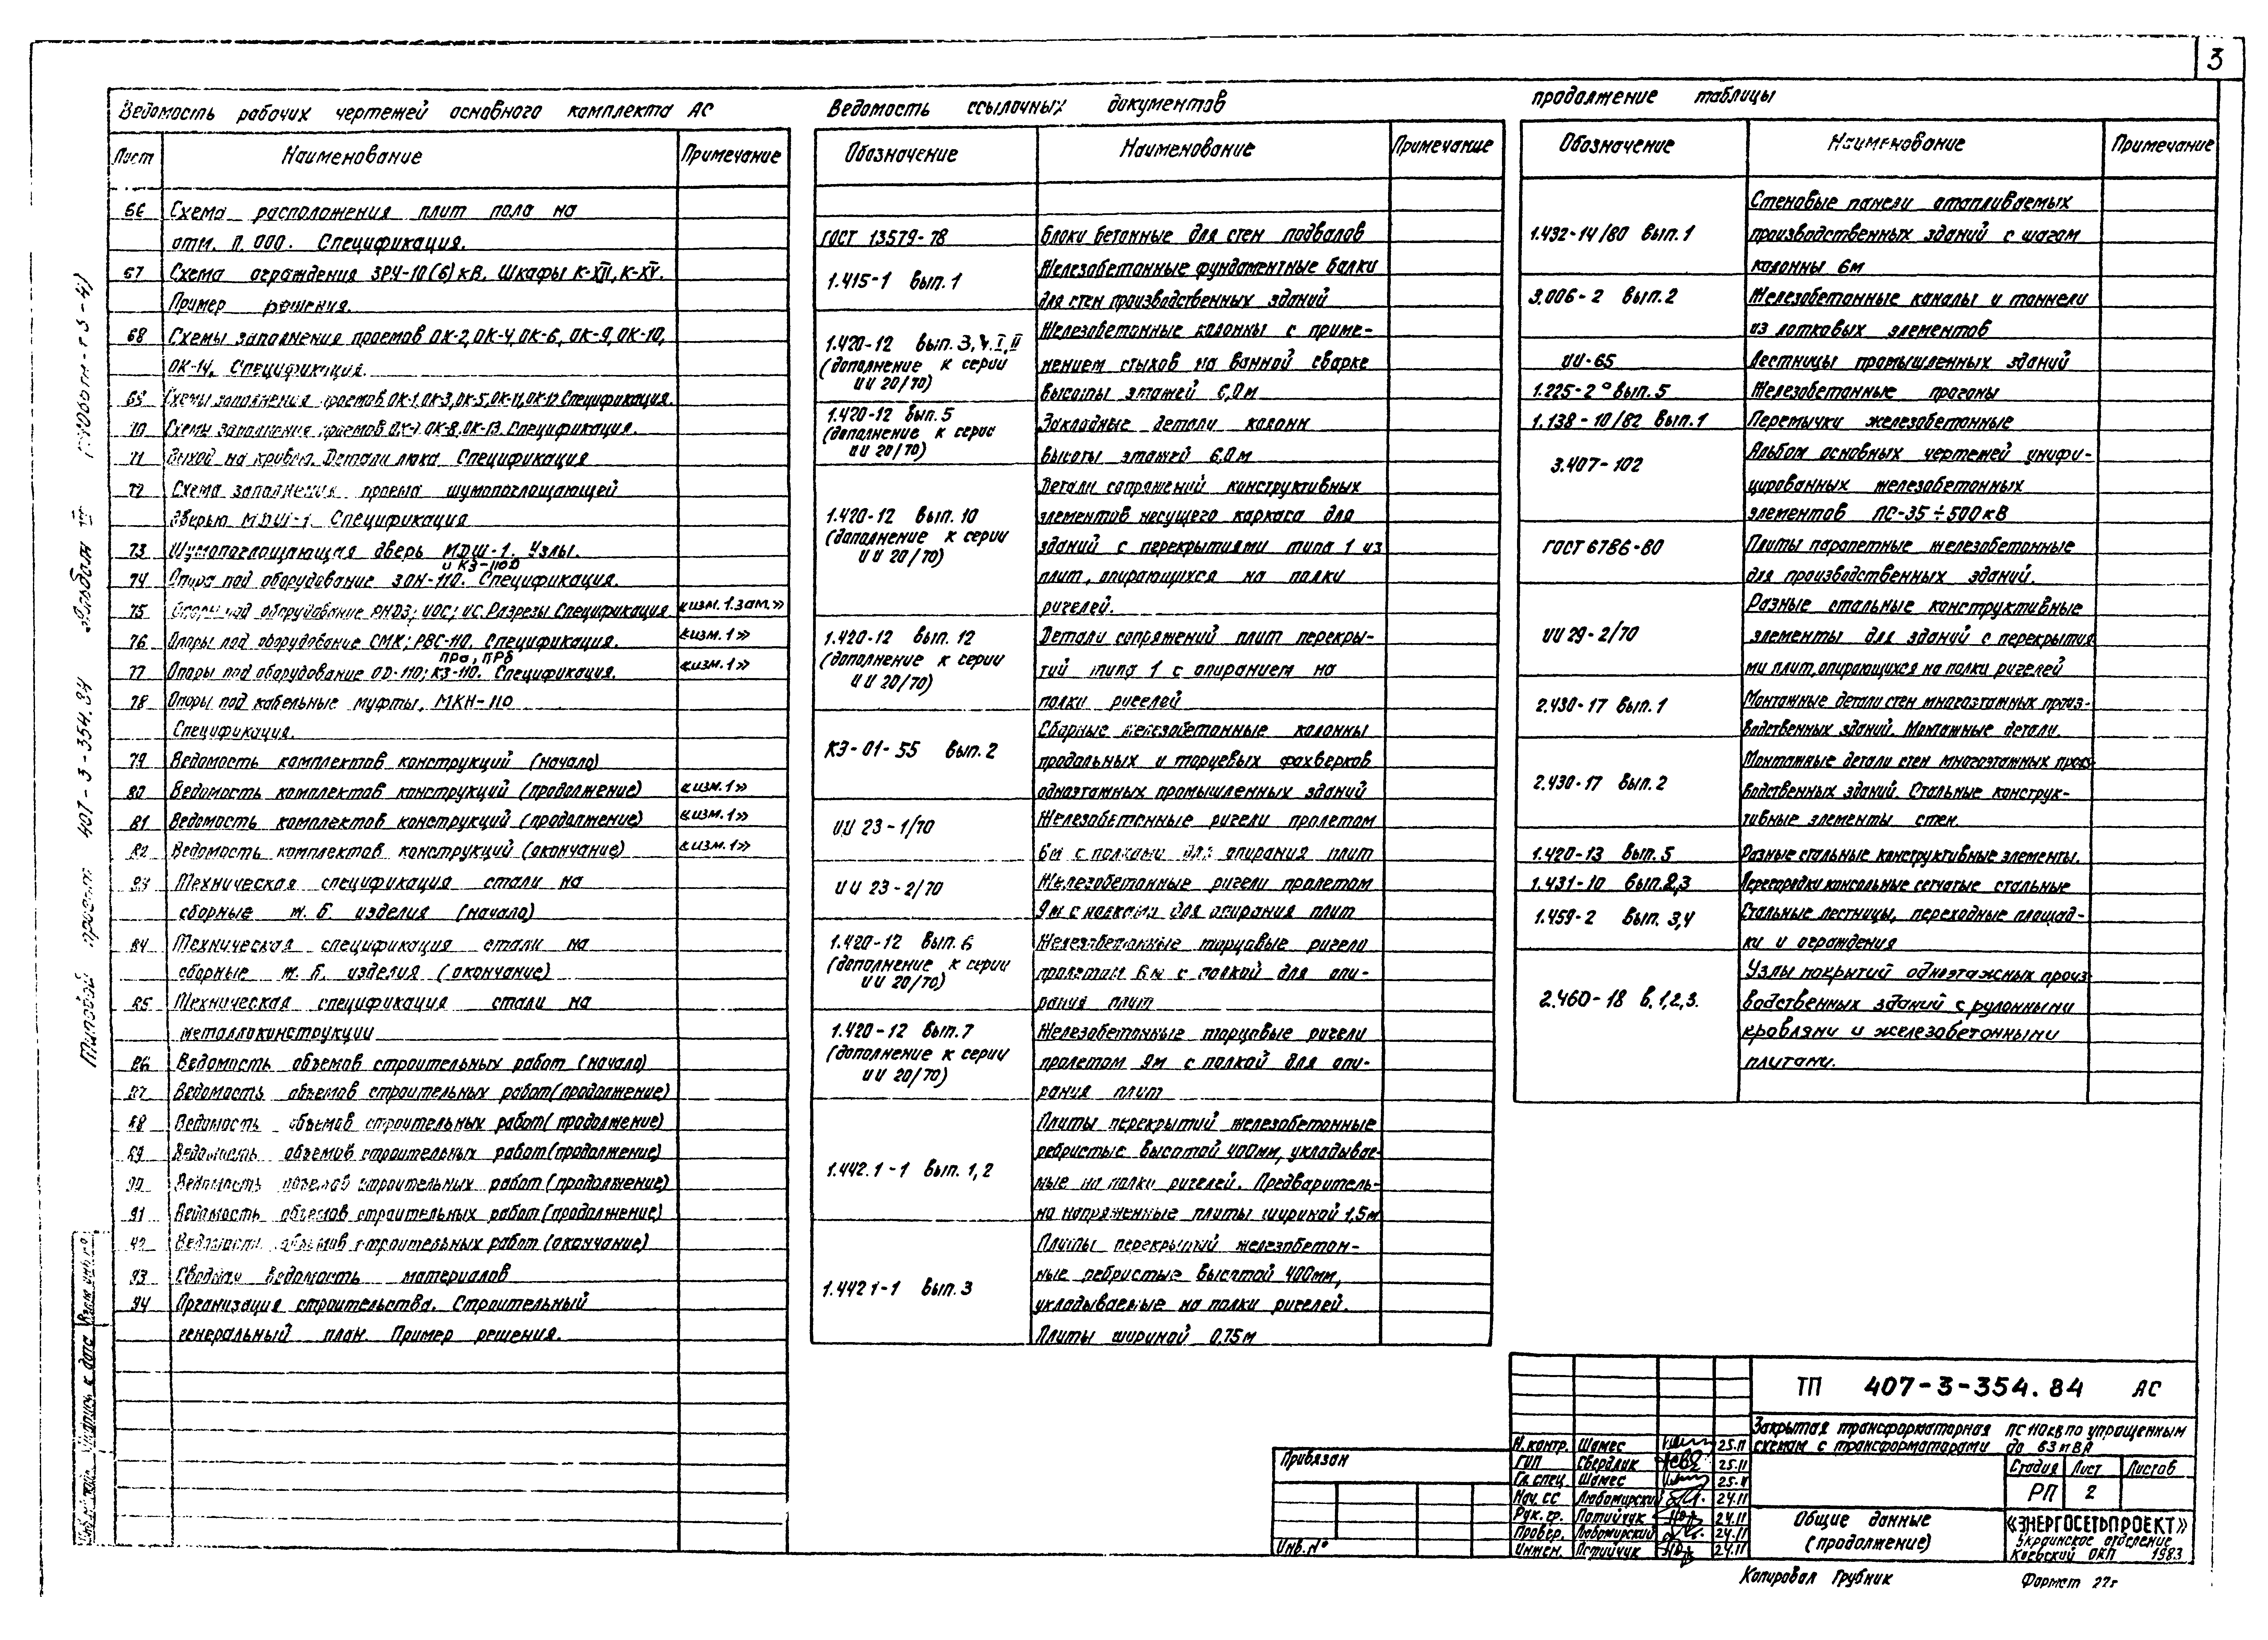 3
Ведомость рабочих чертежей основного комплекта АС
Лист Наименование Примечание
66 Схема расположения плит пола на
отм. П. 000. Спецификация.
67 Схема ограждения ЗРУ-10(6)кВ. Шкафы К-XII, К-XV.
Пример решения.
68 Схемы заполнения проемов ОК-2, ОК-4, ОК-6, ОК-9, ОК-10,
ОК-14, Спецификация.
69 Схемы заполнения проемов ОК-1, ОК-3, ОК-5, ОК-11, ОК-12 Спецификация.
70 Схемы заполнения проемов ОК-7, ОК-8, ОК-13. Спецификация.
71 Выход на кровлю. Детали люка Спецификация
72 Схема заполнения проема шумопоглощающей
дверью МДШ-1. Спецификация
73 Шумопоглощающая дверь МДШ-1. Узлы.
и КЗ-110Д
74 Опора под оборудование ЗОН-110. Спецификация.
75 Опоры под оборудование РНДЗ; ИОС; ИС. Разрезы. Спецификация «изм. 1. зам.»
76 Опоры под оборудование СМК; РВС-110. Спецификация. «изм. 1»
ПРа, ПРб
77 Опоры под оборудование ОД-110; КЗ-110. Спецификация. «изм. 1»
78 Опоры под кабельные муфты, МКН-110
Спецификация.
79 Ведомость комплектов конструкций (начало)
80 Ведомость комплектов конструкций (продолжение) «изм. 1»
81 Ведомость комплектов конструкций (продолжение) «изм. 1»
82 Ведомость комплектов конструкций (окончание) «изм. 1»
83 Техническая спецификация стали на
сборные ж. б. изделия (начало)
84 Техническая спецификация стали на
сборные ж. б. изделия (окончание)
85 Техническая спецификация стали на
металлоконструкции
86 Ведомость объемов строительных работ (начало)
87 Ведомость объемов строительных работ (продолжение)
88 Ведомость объемов строительных работ (продолжение)
89 Ведомость объемов строительных работ (продолжение)
90 Ведомость объемов строительных работ (продолжение)
91 Ведомость объемов строительных работ (продолжение)
92 Ведомость объемов строительных работ (окончание)
93 Сводная ведомость материалов
94 Организация строительства. Строительный
генеральный план. Пример решения.
Ведомость ссылочных документов
Обозначение Наименование Примечание
ГОСТ 13579-78 Блоки бетонные для стен подвалов
1.415-1 вып. 1 Железобетонные фундаментные балки
для стен производственных зданий
1.420-12 вып. 3, V. I, II
(дополнение к серии
ИИ 20/70)
Железобетонные колонны с приме-
нением стыков на ванной сварке
высоты этажей 6,0м
1.420-12 вып. 5
(дополнение к серии
ИИ 20/70)
Закладные детали колонн
высоты этажей 6.0м
1.420-12 вып. 10
(дополнение к серии
ИИ 20/70)
Детали сопряжений конструктивных
элементов несущего каркаса для
зданий с перекрытиями типа 1 из
плит, опирающихся на полки
ригелей.
1.420-12 вып. 12
(дополнение к серии
ИИ 20/70)
Детали сопряжений плит перекры-
тий типа 1 с опиранием на
полки ригелей
КЭ-01-55 вып. 2
Сборные железобетонные колонны
продольных и торцевых фахверков
одноэтажных промышленных зданий
ИИ 23-1/70
Железобетонные ригели пролетом
6м с полками для опирания плит
ИИ 23-2/70
Железобетонные ригели пролетом
9м с полками для опирания плит
1.420-12 вып. 6
(дополнение к серии
ИИ 20/70)
Железобетонные торцовые ригели
пролетом 6м с полкой для опи-
рания плит
1.420-12 вып. 7
(дополнение к серии
ИИ 20/70)
Железобетонные торцовые ригели
пролетом 9м с полкой для опи-
рания плит
1.442.1-1 вып. 1, 2
Плиты перекрытий железобетонные
ребристые высотой 400мм, укладывае-
мые на полки ригелей. Предваритель-
но напряженные плиты шириной 1,5м
1.442 1-1 вып. 3
Плиты перекрытий железобетон-
ные ребристые высотой 400мм,
укладываемые на полки ригелей.
Плиты шириной 0,75м
продолжение таблицы
Обозначение Наименование Примечание
1.432-14/80 вып. 1
Стеновые панели отапливаемых
производственных зданий с шагом
колонны 6м
3.006-2 вып. 2 Железобетонные каналы и тоннели
из лотковых элементов
ИИ-65 Лестницы промышленных зданий
1.225-2 вып. 5 Железобетонные прогоны
1.138-10/82 вып. 1 Перемычки железобетонные
3.407-102
Альбом основных чертежей унифи-
цированных железобетонных
элементов ПС-35÷500кВ
ГОСТ 6786-80 Плиты парапетные железобетонные
для производственных зданий.
ИИ 29-2/70
Разные стальные конструктивные
элементы для зданий с перекрытия
ми плит, опирающихся на полки ригелей
2.430-17 вып. 1
Монтажные детали стен многоэтажных произ-
водственных зданий. Монтажные детали.
2.430-17 вып. 2
Монтажные детали стен многоэтажных произ-
водственных зданий. Стальные конструк-
тивные элементы стен.
1.420-13 вып. 5 Разные стальные конструктивные элементы.
1.431-10 вып. 2,3 Перегородки консольные сетчатые стальные
1.459-2 вып. 3,4 Стальные лестницы, переходные площад-
ки и ограждения
2.460-18 в. 1,2,3.
Узлы покрытий одноэтажных произ-
водственных зданий с рулонными
кровлями и железобетонными
плитами.
Типовой проект 407-3-354.84 Альбом III
Инв. № подл. Подпись и дата Взам. инв. №
Привязан
Инв. №
ТП 407-3-354.84 АС
Закрытая трансформаторная ПС 110кВ по упрощенным
схемам с трансформаторами до 63 МВА
Н. контр. Шамес 25.11
ГИП Свердлик 25.11
Гл. спец. Шамес 25.11
Нач. СС Любомирский 24.11
Рук. гр. Потийчук 24.11
Провер. Любомирский 24.11
Инжен. Потийчук 24.11
Стадия Лист Листов
РП 2
Общие данные
(продолжение)
«ЭНЕРГОСЕТЬПРОЕКТ»
Украинское отделение
Киевский ОКП 1983
Копировал Грубник Формат 22г